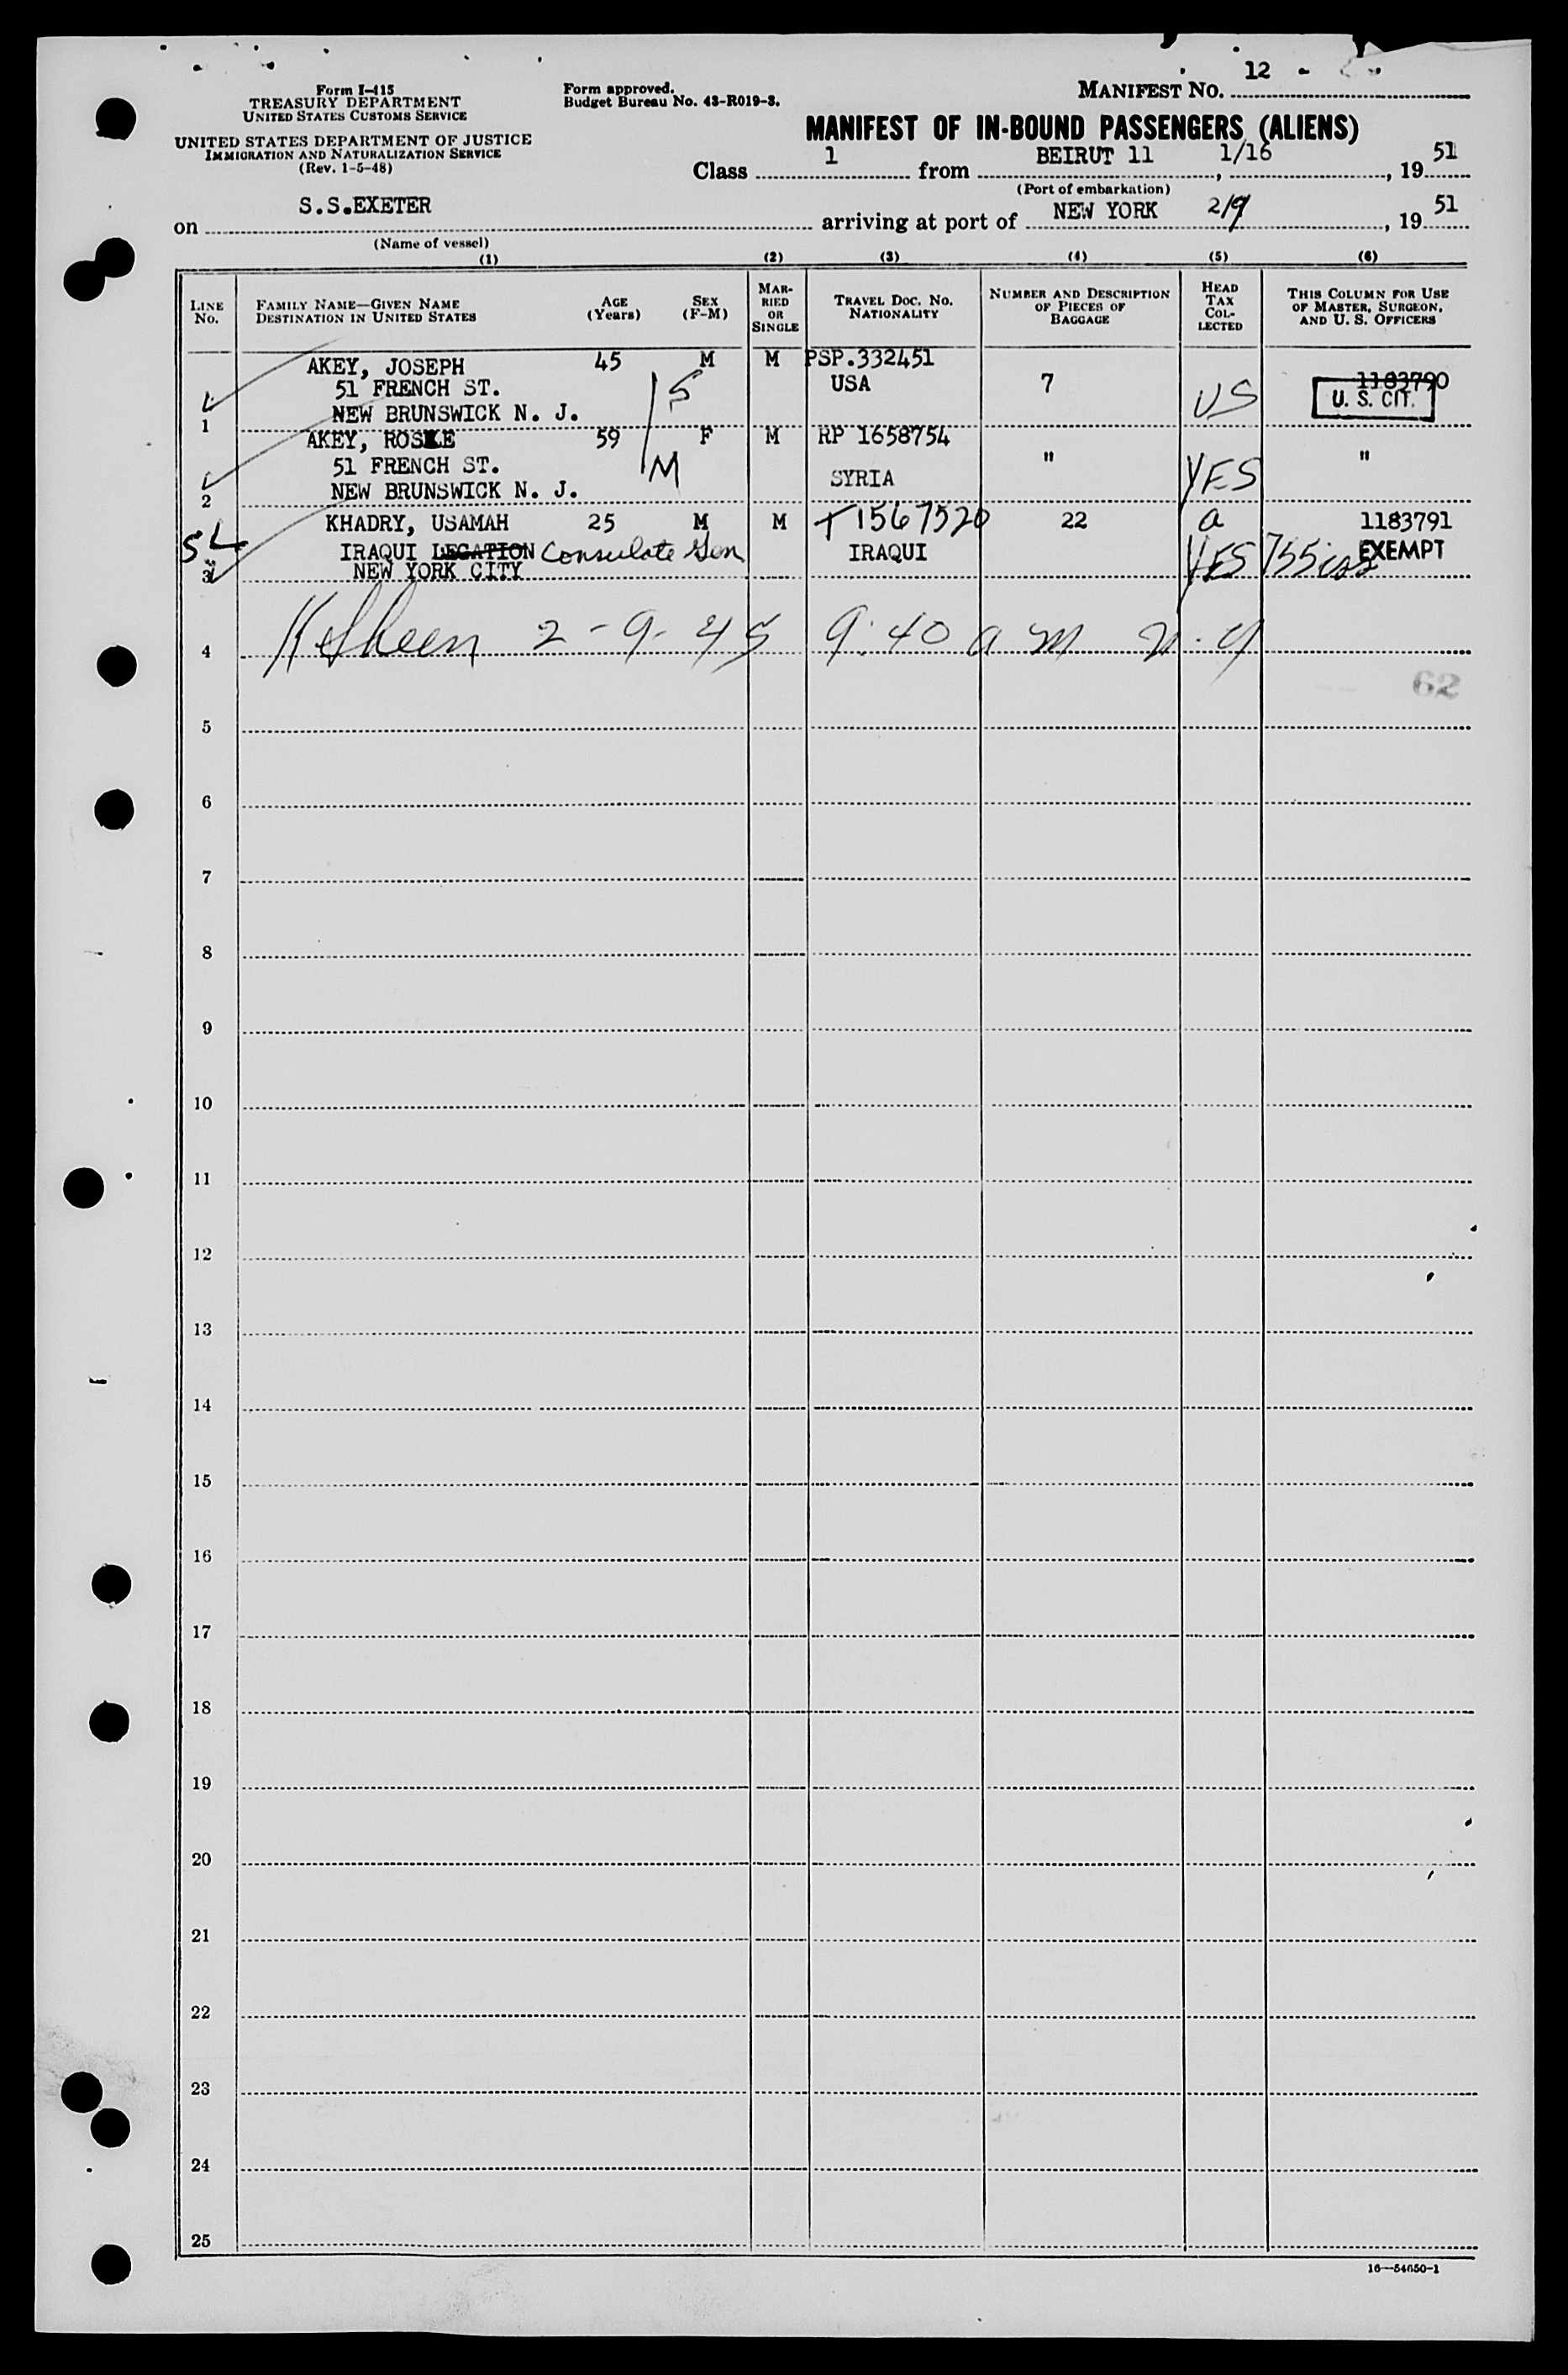 Form I-415
TREASURY DEPARTMENT
UNITED STATES CUSTOMS SERVICE
UNITED STATES DEPARTMENT OF JUSTICE
IMMIGRATION AND NATURALIZATION SERVICE
(Rev. 1-5-48)
Form approved.
Budget Bureau No. 43-R019-3.
MANIFEST NO. 12
MANIFEST OF IN-BOUND PASSENGERS (ALIENS)
Class 1 from BEIRUT 11, 1/16, 1951
(Port of embarkation)
on S.S.EXETER arriving at port of NEW YORK 2/9, 1951
(Name of vessel)
(1) (2) (3) (4) (5) (6)
LINE NO. FAMILY NAME—GIVEN NAME DESTINATION IN UNITED STATES AGE (Years) SEX (F-M) MARRIED OR SINGLE TRAVEL DOC. NO. NATIONALITY NUMBER AND DESCRIPTION OF PIECES OF BAGGAGE HEAD TAX COLLECTED THIS COLUMN FOR USE OF MASTER, SURGEON, AND U. S. OFFICERS
AKEY, JOSEPH 45 M M PSP.332451
51 FRENCH ST. S USA 7 US 1183790
NEW BRUNSWICK N. J. U. S. CIT.
1
AKEY, ROSIE 59 F M RP 1658754
51 FRENCH ST. M SYRIA " YES "
2 NEW BRUNSWICK N. J.
KHADRY, USAMAH 25 M M T 1567520 22 a 1183791
SL IRAQUI LEGATION Consulate Gen IRAQUI YES 755 EXEMPT
3 NEW YORK CITY
4 2-9-45 9:40 a m n.y
62
5
6
7
8
9
10
11
12
13
14
15
16
17
18
19
20
21
22
23
24
25
16—54650-1